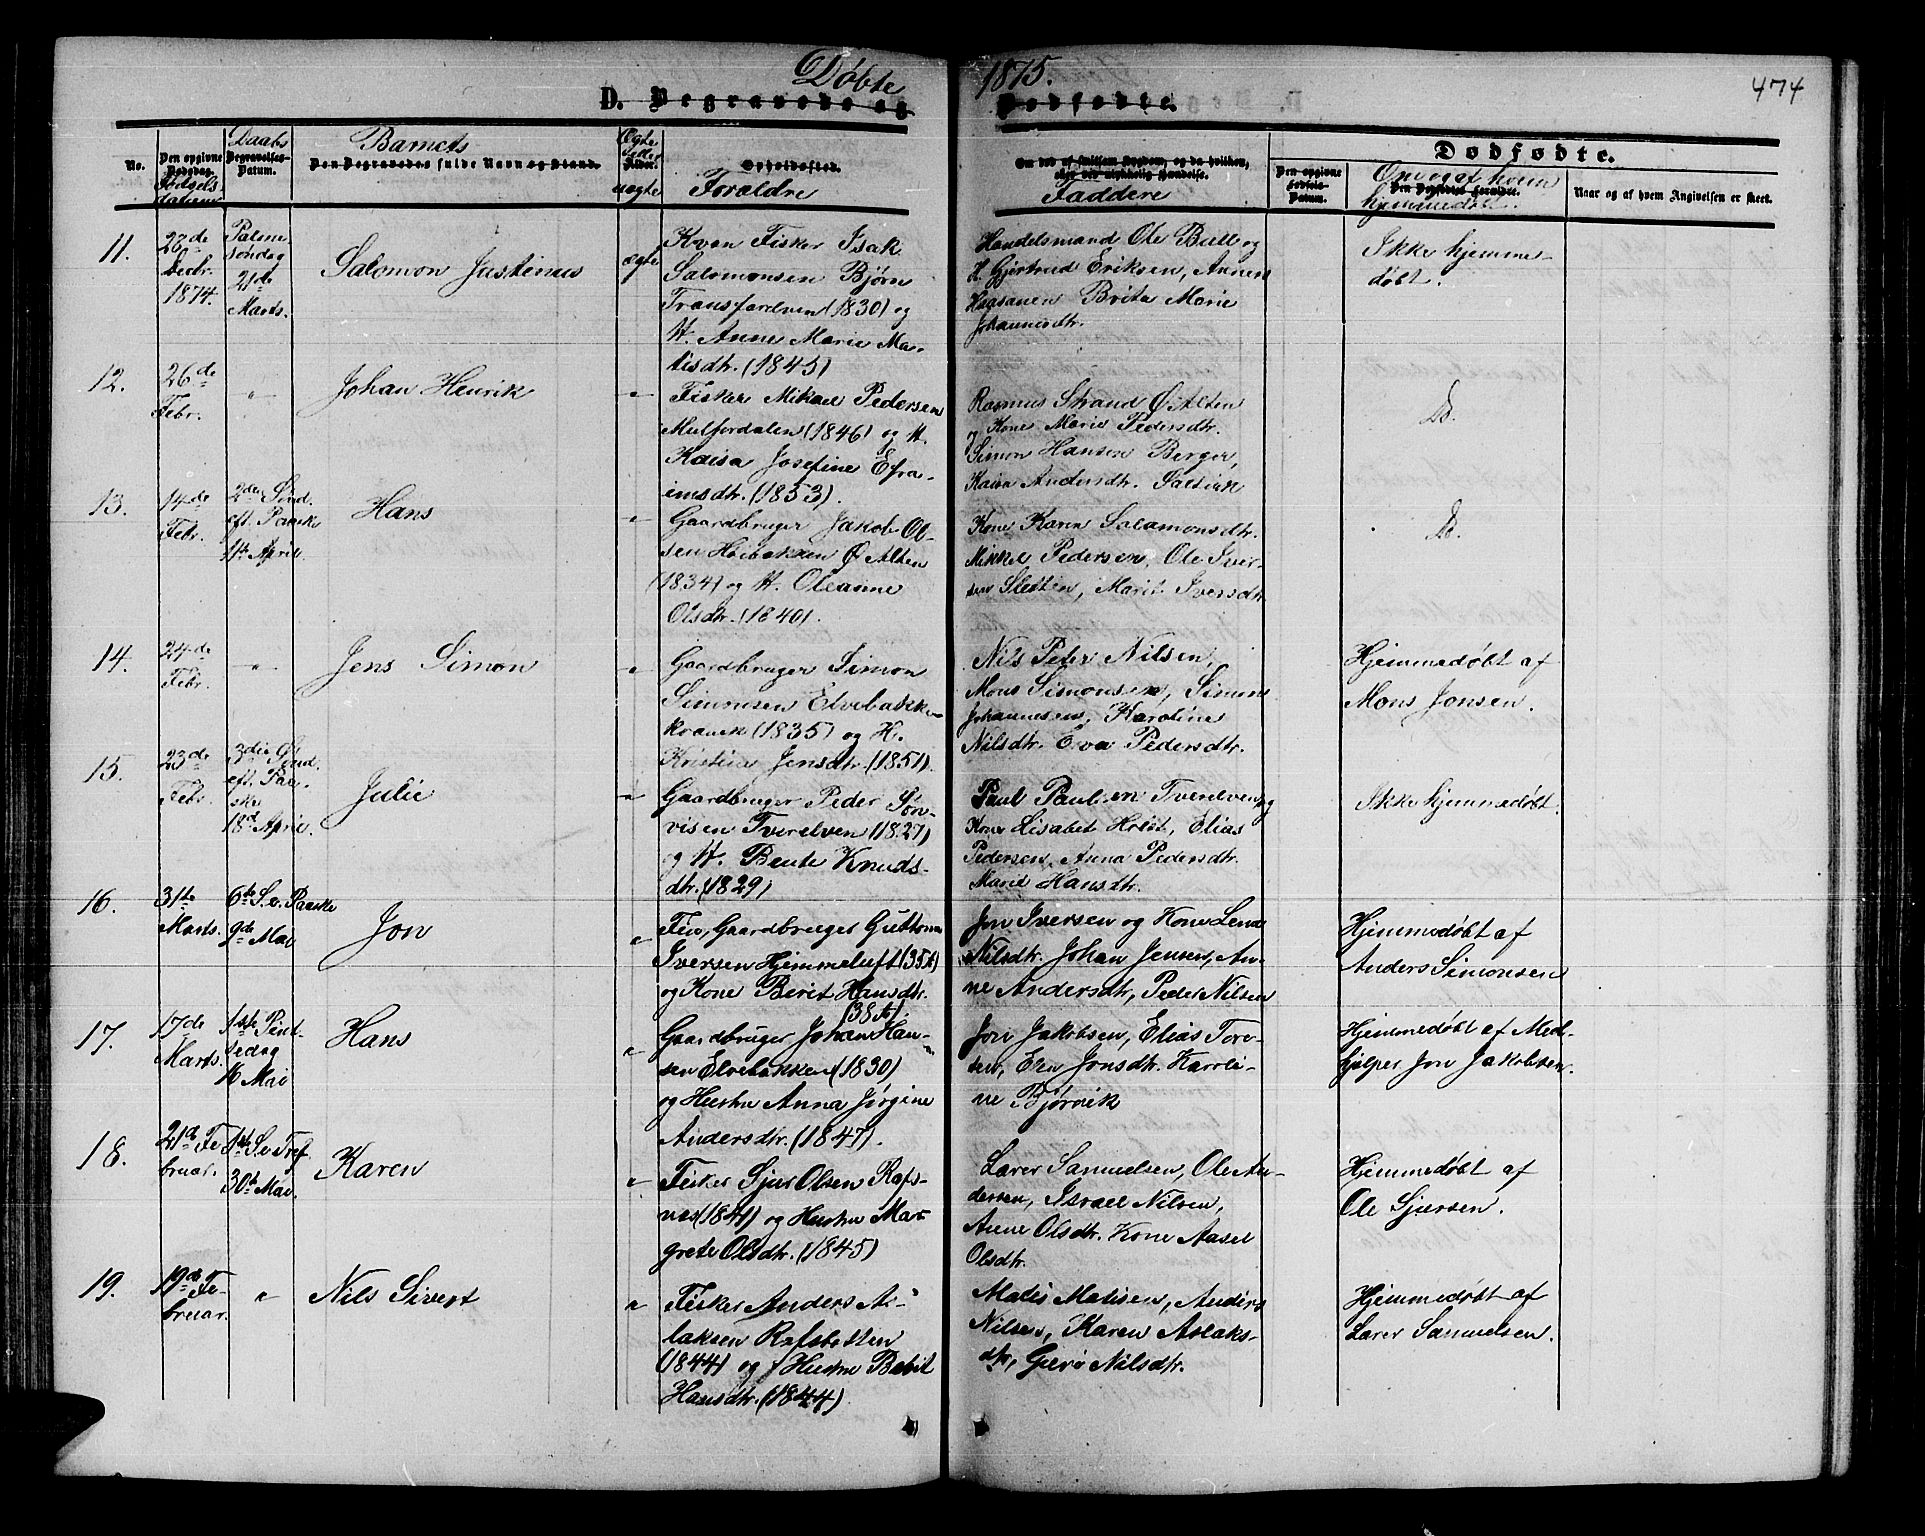 Døbte
1875.
474
D. Begravede og
Dødfødte.
No.
Den opgivne Dødsdag.
Fødselsdatum
Daabs
Begravelses-Datum.
Barnets
Den Begravedes fulde Navn og Stand.
Ægte eller uægte
Alder.
Opholdssted.
Forældre
Om død af smitsom Sygdom, og da hvilken, eller ved ulykkelig Hændelse.
Faddere
Dødfødte.
Den opgivne Fødsels-Datum.
Om og af hvem hjemmedøbt.
Den Dødfødtes Forældre.
Naar og af hvem Angivelsen er skeet.
11.
28de
Decbr.
1874.
Palme
søndag
21de
Marts.
Salomon Justinus
ægte
Kvæn Fisker Isak
Salomonsen Bjørn
Transfardelven (1830) og
H. Anne Marie Ma-
tisdtr. (1845)
Handelsmand Ole Bull og
H. Gjertrud Eriksen, Annen
Haasanen Brita Marie
Johannesdtr.
Ikke hjemme-
døbt.
12.
26de
Febr.
"
Johan Henrik
"
Fisker Mikael Pedersen
Melfordalen (1846) og H.
Kaisa Josefine Efra-
imsdtr. (1853).
Rasmus Strand Ø. Alten
og Kone Marie Pedersdtr.
Simon Hansen Berger,
Kaisa Andersdtr. Saltvik
Do.
13.
14de
Febr.
2den Sønd.
eft. Paaske
11te April.
Hans
"
Gaardbruger Jakob Ol-
sen Høibakken Ø. Alten
(1834) og H. Oleanne
Olsdtr. (1840).
Kone Karen Salamonsdtr.
Mikkel Pedersen, Ole Iver-
sen Sletten, Marit Iversdtr.
Do.
14.
24de
Febr.
"
Jens Simon
"
Gaardbruger Simon
Simonsen Elvebakke-
kravik (1835) og H.
Kristine Jensdtr. (1851).
Nils Peter Nilsen,
Mons Simonsen, Simon
Johannesen, Karoline
Nilsdtr. Eva Pedersdtr.
Hjemmedøbt af
Mons Jonsen.
15.
23de
Febr.
3die Sønd.
eft. Paa-
ske
18de April.
Julie
"
Gaardbruger Peder Søn-
visen Tverelven (1827)
og H. Beate Knuds-
dtr. (1829)
Paul Paulsen Tverelven og
Kone Lisabet Holst, Elias
Pedersen, Anna Pedersdtr.
Marie Hansdtr.
Ikke hjemmedøbt.
16.
31te
Marts.
6te S. e. Paaske
9de Mai
Jon
"
Fin, Gaardbruger Guttorm
Iversen Hjemmeluft (35 A)
og Kone Berit Hansdtr.
(38 A).
Jon Iversen og Kone Lena
Nilsdtr. Johan Jensen, An-
ne Andersdtr, Peder Nilsen
Hjemmedøbt af
Anders Simonsen
17.
17de
Marts.
1ste Pint-
sedag
16 Mai
Hans
"
Gaardbruger Johan Han-
sen Elvebakken (1830)
og Hustru Anna Jørgine
Andersdtr. (1847).
Jon Jakobsen, Elias Tore-
sen, Elen Jonsdtr. Karoli-
ne Bjørvik
Hjemmedøbt af Med-
hjælper Jon Jakobsen.
18.
21de Fe
bruar.
1ste S. e. Tref.
30te Mai
Karen
"
Fisker Sjur Olsen Rafs-
nes (1841) og Hustru Mar
grete Olsdtr. (1845)
Larer Samuelsen, Ole An-
dersen, Israel Nilsen,
Anne Olsdtr. Kone Aasel
Olsdtr.
Hjemmedøbt af
Ole Sjursen.
19.
19de Fe-
bruar.
"
Nils Sivert
"
Fisker Anders As-
laksen Rafsbotten
(1844) og Hustru Berit
Hansdtr. (1844)
Matis Matisen, Anders
Nilsen, Karen Aslaks-
dtr, Guro Nilsdtr.
Hjemmedøbt af
Larer Samuelsen.